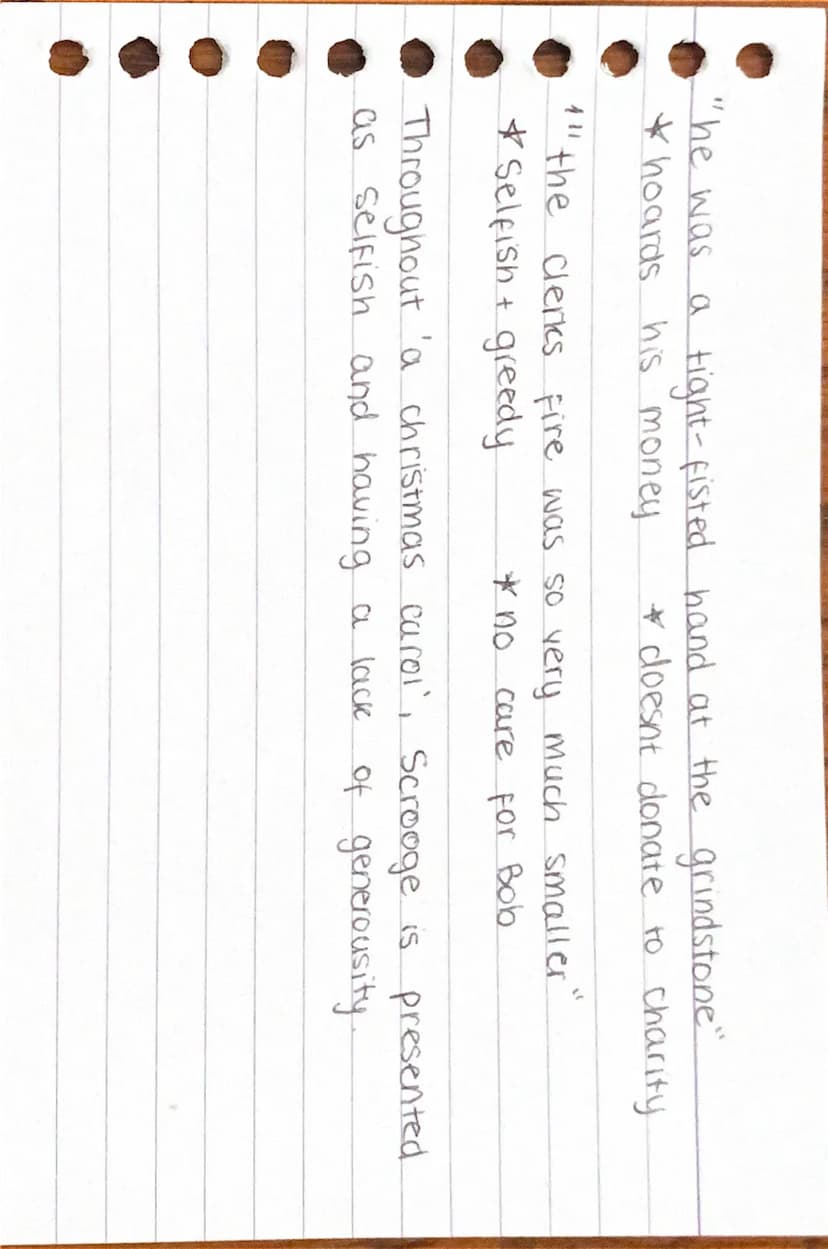 "he was a tight-fisted hand at the grindstone"
* hoards his money * doesnt donate to charity
"" the clerks fire was so very much smaller"
* selfish + greedy * no care for Bob
Throughout 'a christmas carol', Scrooge is presented
as selfish and having a lack of generousity.